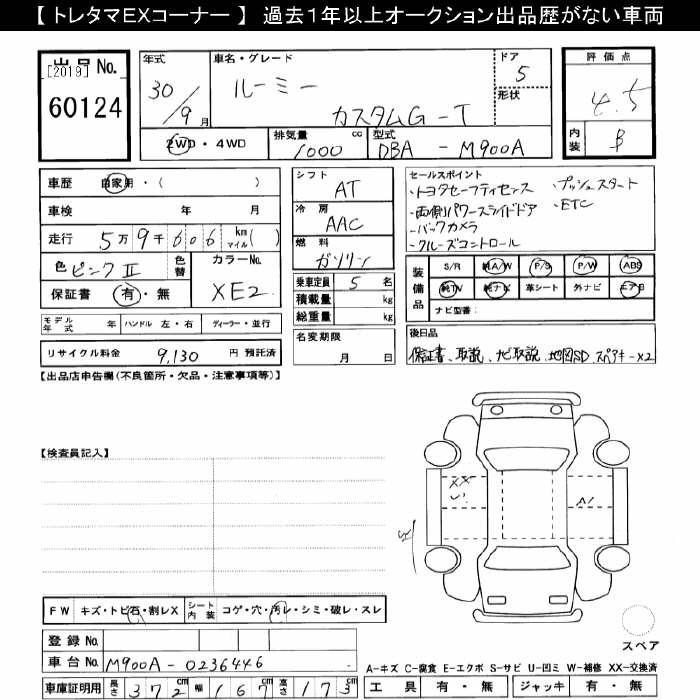 【 トレタマEXコーナー 】 過去1年以上オークション出品歴がない車両
出品No.
[2019]
60124
年式
30/9月
車名・グレード
ルーミー
カスタムG-T
ドア
5
形状
評価点
4.5
内装
B
2WD・4WD
排気量 cc
1000
型式
DBA - M900A
車歴 自家用・( )
車検 年 月
走行 5万9千606 km マイル( )
色 ピンクⅡ 色替
カラーNo.
XE2
保証書 有・無
シフト
AT
冷房
AAC
燃料
ガソリン
乗車定員 5 名
積載量 kg
総重量 kg
セールスポイント
・トヨタセーフティセンス ・プッシュスタート
・両側パワースライドドア ・ETC
・バックカメラ
・クルーズコントロール
装備品
S/R 純A/W P/S P/W ABS
純TV 純ナビ 革シート 外ナビ エアB
ナビ型番:
モデル年式 年 ハンドル 左・右 ディーラー・並行
名変期限
月 日
後日品
保証書、取説、ナビ取説、地図SD、スペアキーx2
リサイクル料金 9,130 円 預託済
【出品店申告欄(不良箇所・欠品・注意事項等)】
【検査員記入】
XX
A1
FW キズ・トビ石・割レX シート内装 コゲ・穴・汚レ・シミ・破レ・スレ
登録No.
車台No. M900A-0236446
車庫証明用 長さ 372cm 幅 167cm 高さ 173cm
スペア
A-キズ C-腐食 E-エクボ S-サビ U-凹ミ W-補修 XX-交換済
工具 有・無 ジャッキ 有・無